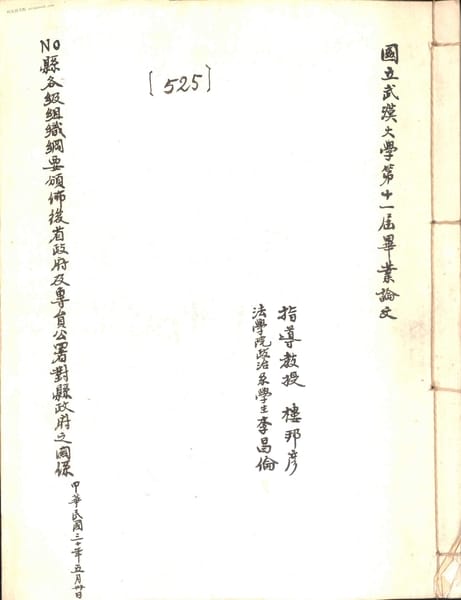 國立武漢大學第十一届畢業論文
指導教授 樓邦彥
法學院政治系學生李昌倫
[525]
NO縣各級組織綱要頒佈後省政府及專員公署對縣政府之關係
中華民國三十年五月卅日